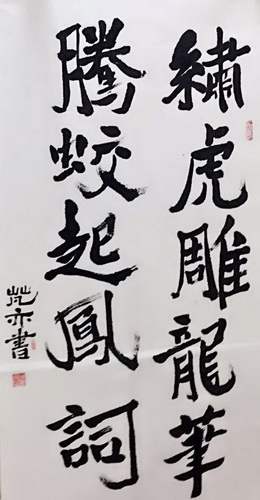 繡虎雕龍筆
騰蛟起鳳詞
亦書